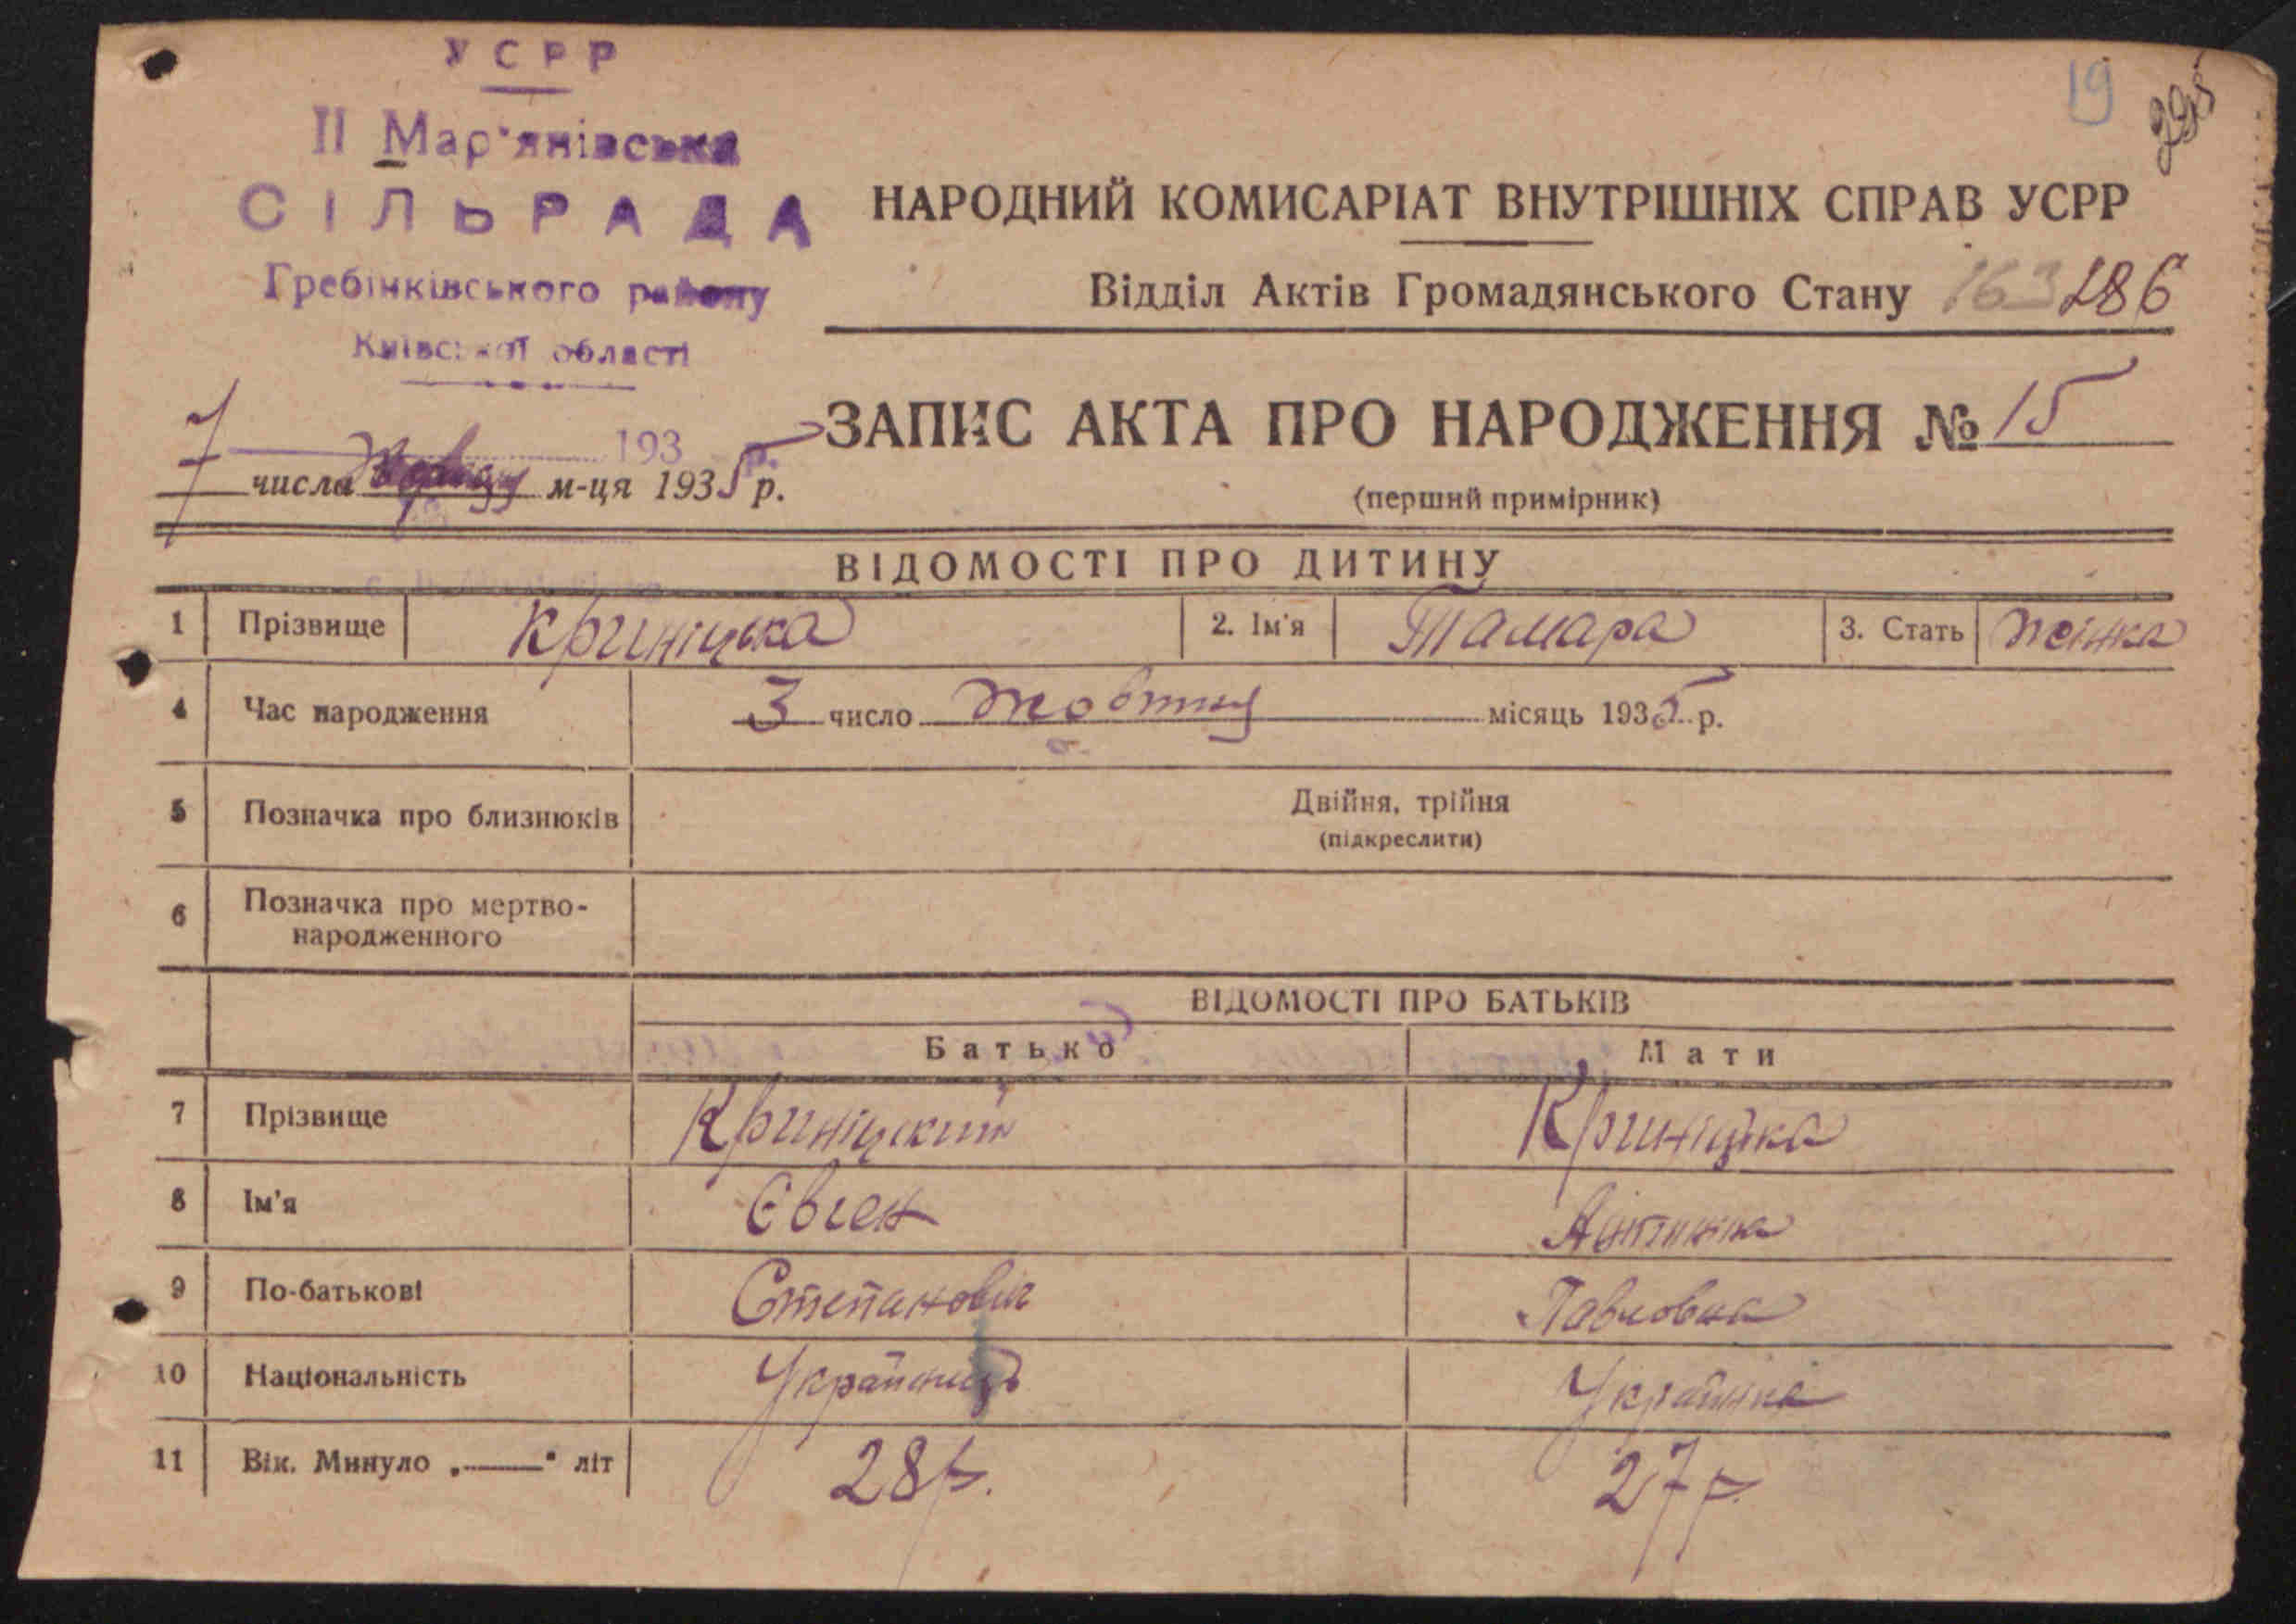 УСРР
19
ІІ Мар'янівська
СІЛЬРАДА
Гребінківського району
Київської області
НАРОДНИЙ КОМИСАРІАТ ВНУТРІШНІХ СПРАВ УСРР
Відділ Актів Громадянського Стану 163 286
193 р.
7 числа жовтня м-ця 1935 р.
ЗАПИС АКТА ПРО НАРОДЖЕННЯ № 15
(перший примірник)
ВІДОМОСТІ ПРО ДИТИНУ
1 Прізвище Криніцька 2. Ім'я Тамара 3. Стать жінка
4 Час народження 3 число жовтня місяць 1935 р.
5 Позначка про близнюків Двійня, трійня
(підкреслити)
6 Позначка про мертво-
народженного
ВІДОМОСТІ ПРО БАТЬКІВ
Батько Мати
7 Прізвище Криніцкий Криніцка
8 Ім'я Євген Антоніна
9 По-батькові Степанович Павловна
10 Національність Українець Українка
11 Вік. Минуло „——" літ 28 р. 27 р.